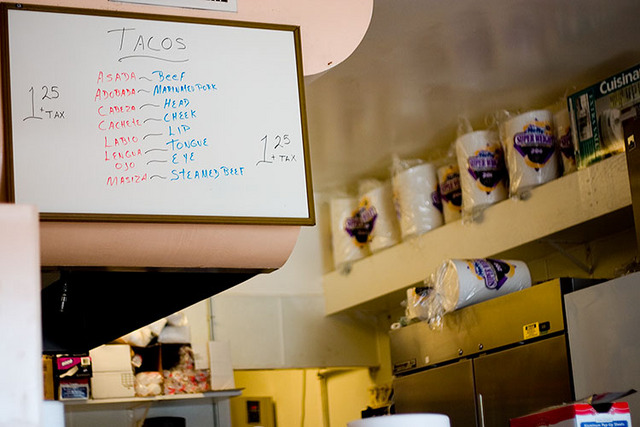 TACOS
1 25 + TAX
ASADA ~ BEEF
ADOBADA ~ MARINATED PORK
CABEZA ~ HEAD
CACHETE ~ CHEEK
LABIO ~ LIP
LENGUA ~ TONGUE
OJO ~ EYE
MASIZA ~ STEAMED BEEF
1 25 + TAX
Cuisina
Hefty
SUPER WEIGHT
200